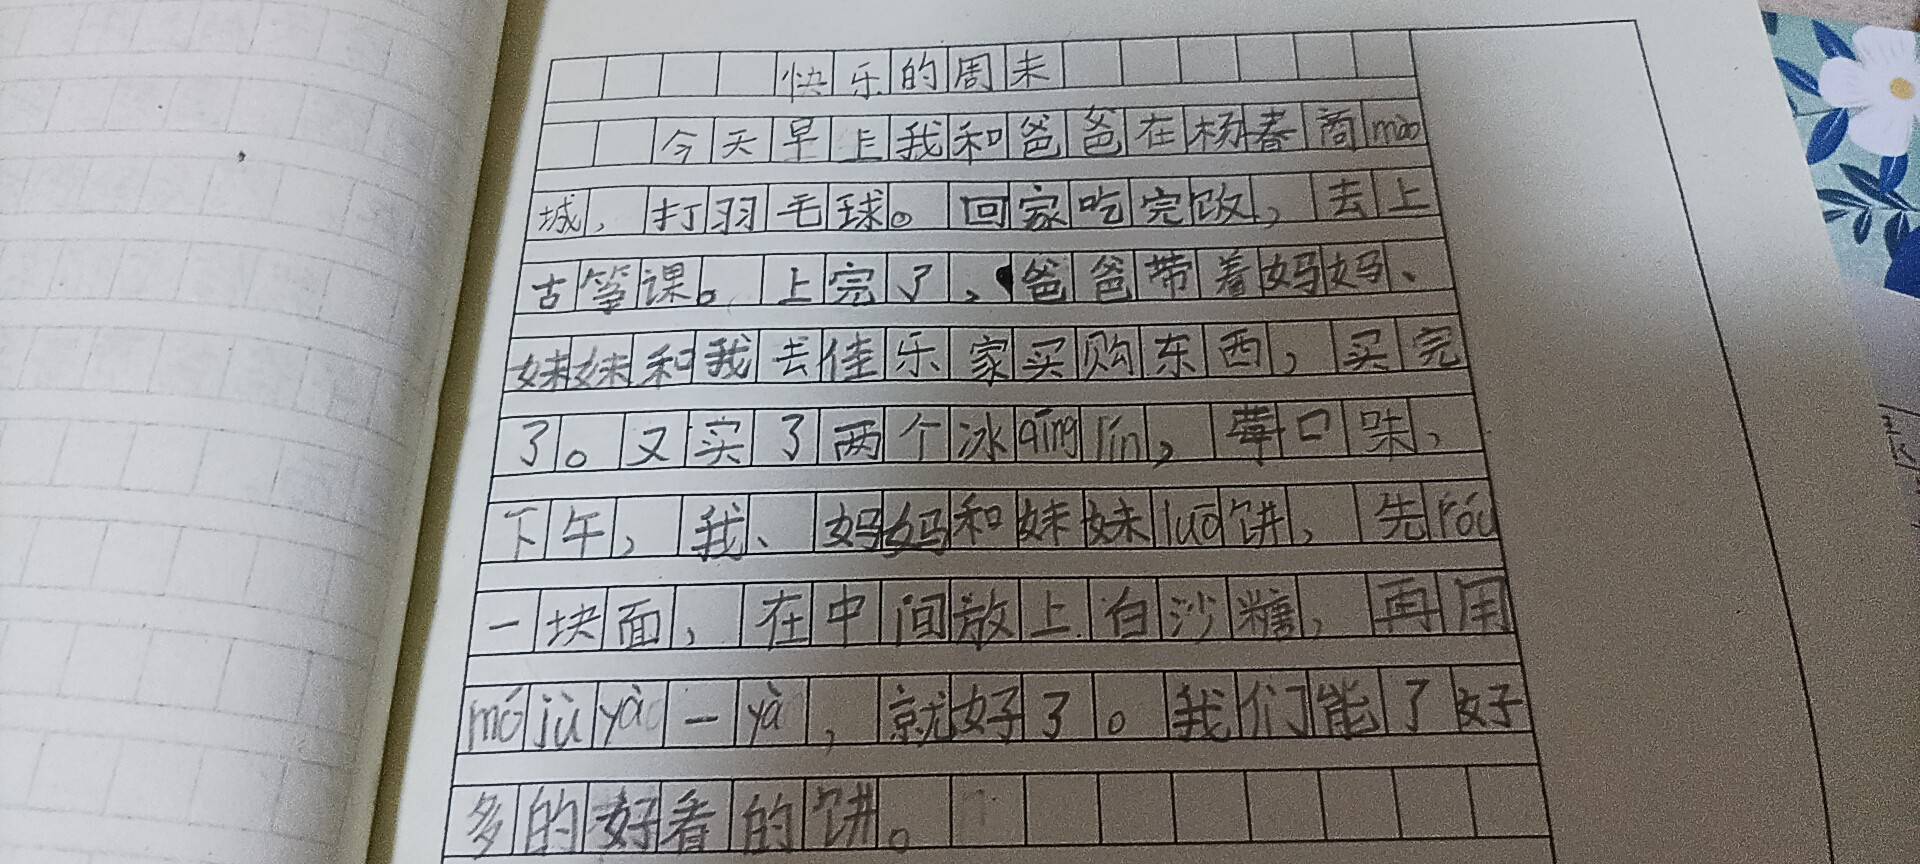 快乐的周未
今天早上我和爸爸在杨春商mào
城，打羽毛球。回家吃完饭，去上
古筝课。上完了，爸爸带着妈妈、
妹妹和我去佳乐家买购东西，买完
了。又买了两个冰qíng lín，莓口味，
下午，我、妈妈和妹妹luō饼，先róu
一块面，在中间放上白沙糖，再用
mó jù yà一yà，就好了。我们能了好
多的好看的饼。